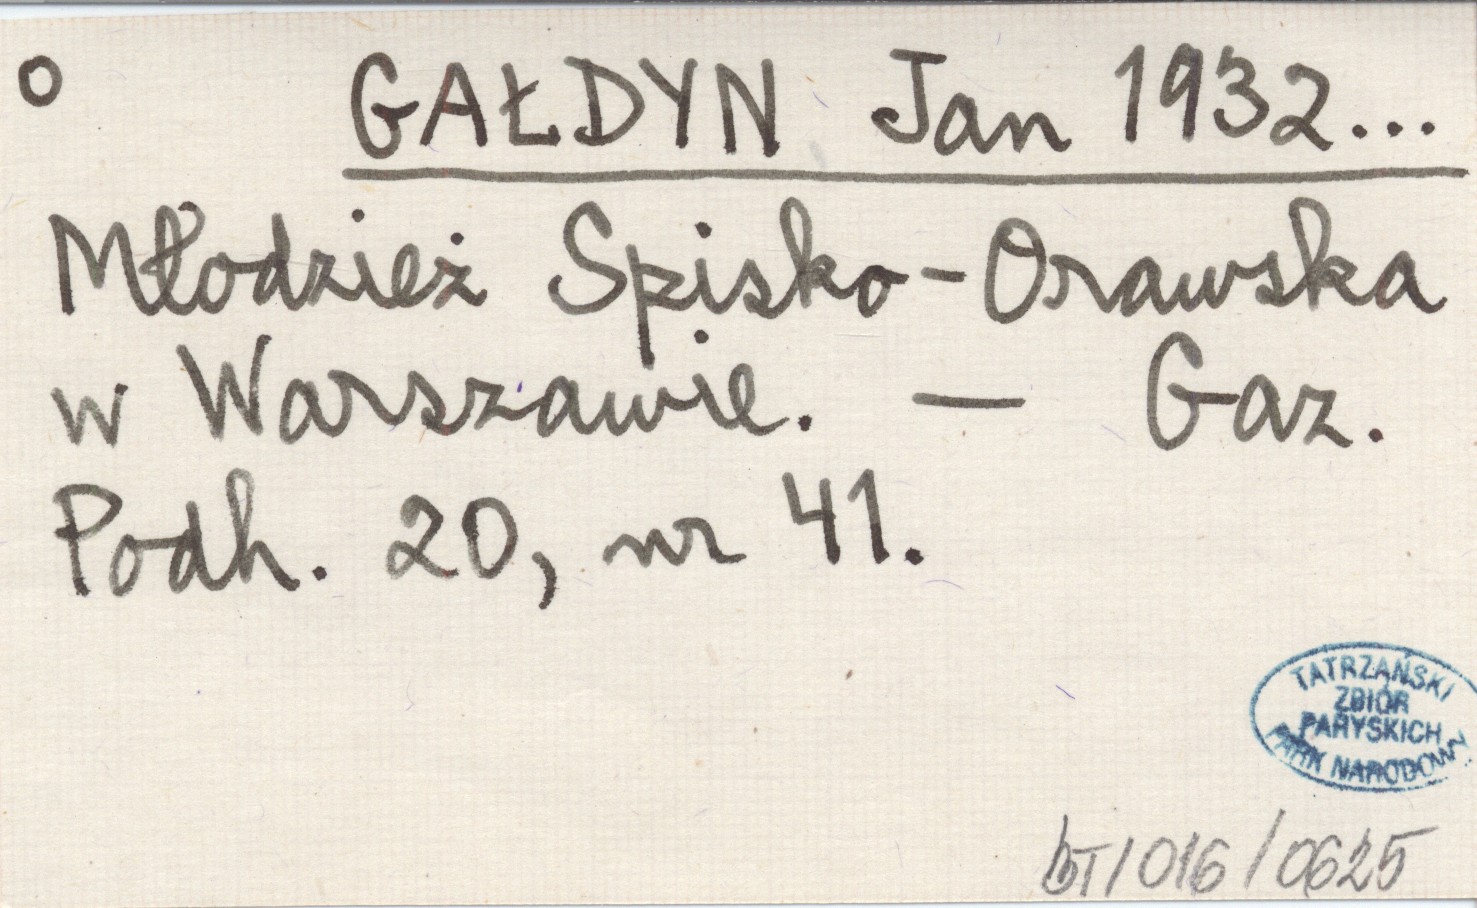 o GAŁDYN Jan 1932...
Młodzież Spisko-Orawska
w Warszawie. — Gaz.
Podh. 20, nr 41.
TATRZAŃSKI
ZBIÓR
PARYSKICH
PARK NARODOWY
bT/016/0625